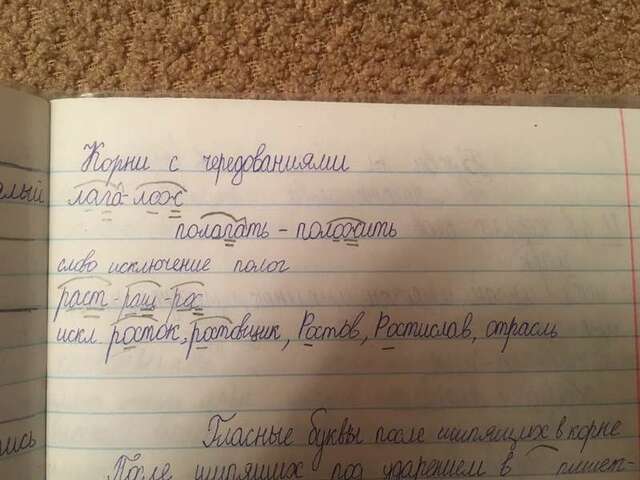 Корни с чередованиями
лага-лож
полагать - положить
слово исключение полог
раст-ращ-рос
искл росток, ростовщик, Ростов, Ростислав, отрасль
Гласные буквы после шипящих в корне
После шипящих под ударением в пишет-